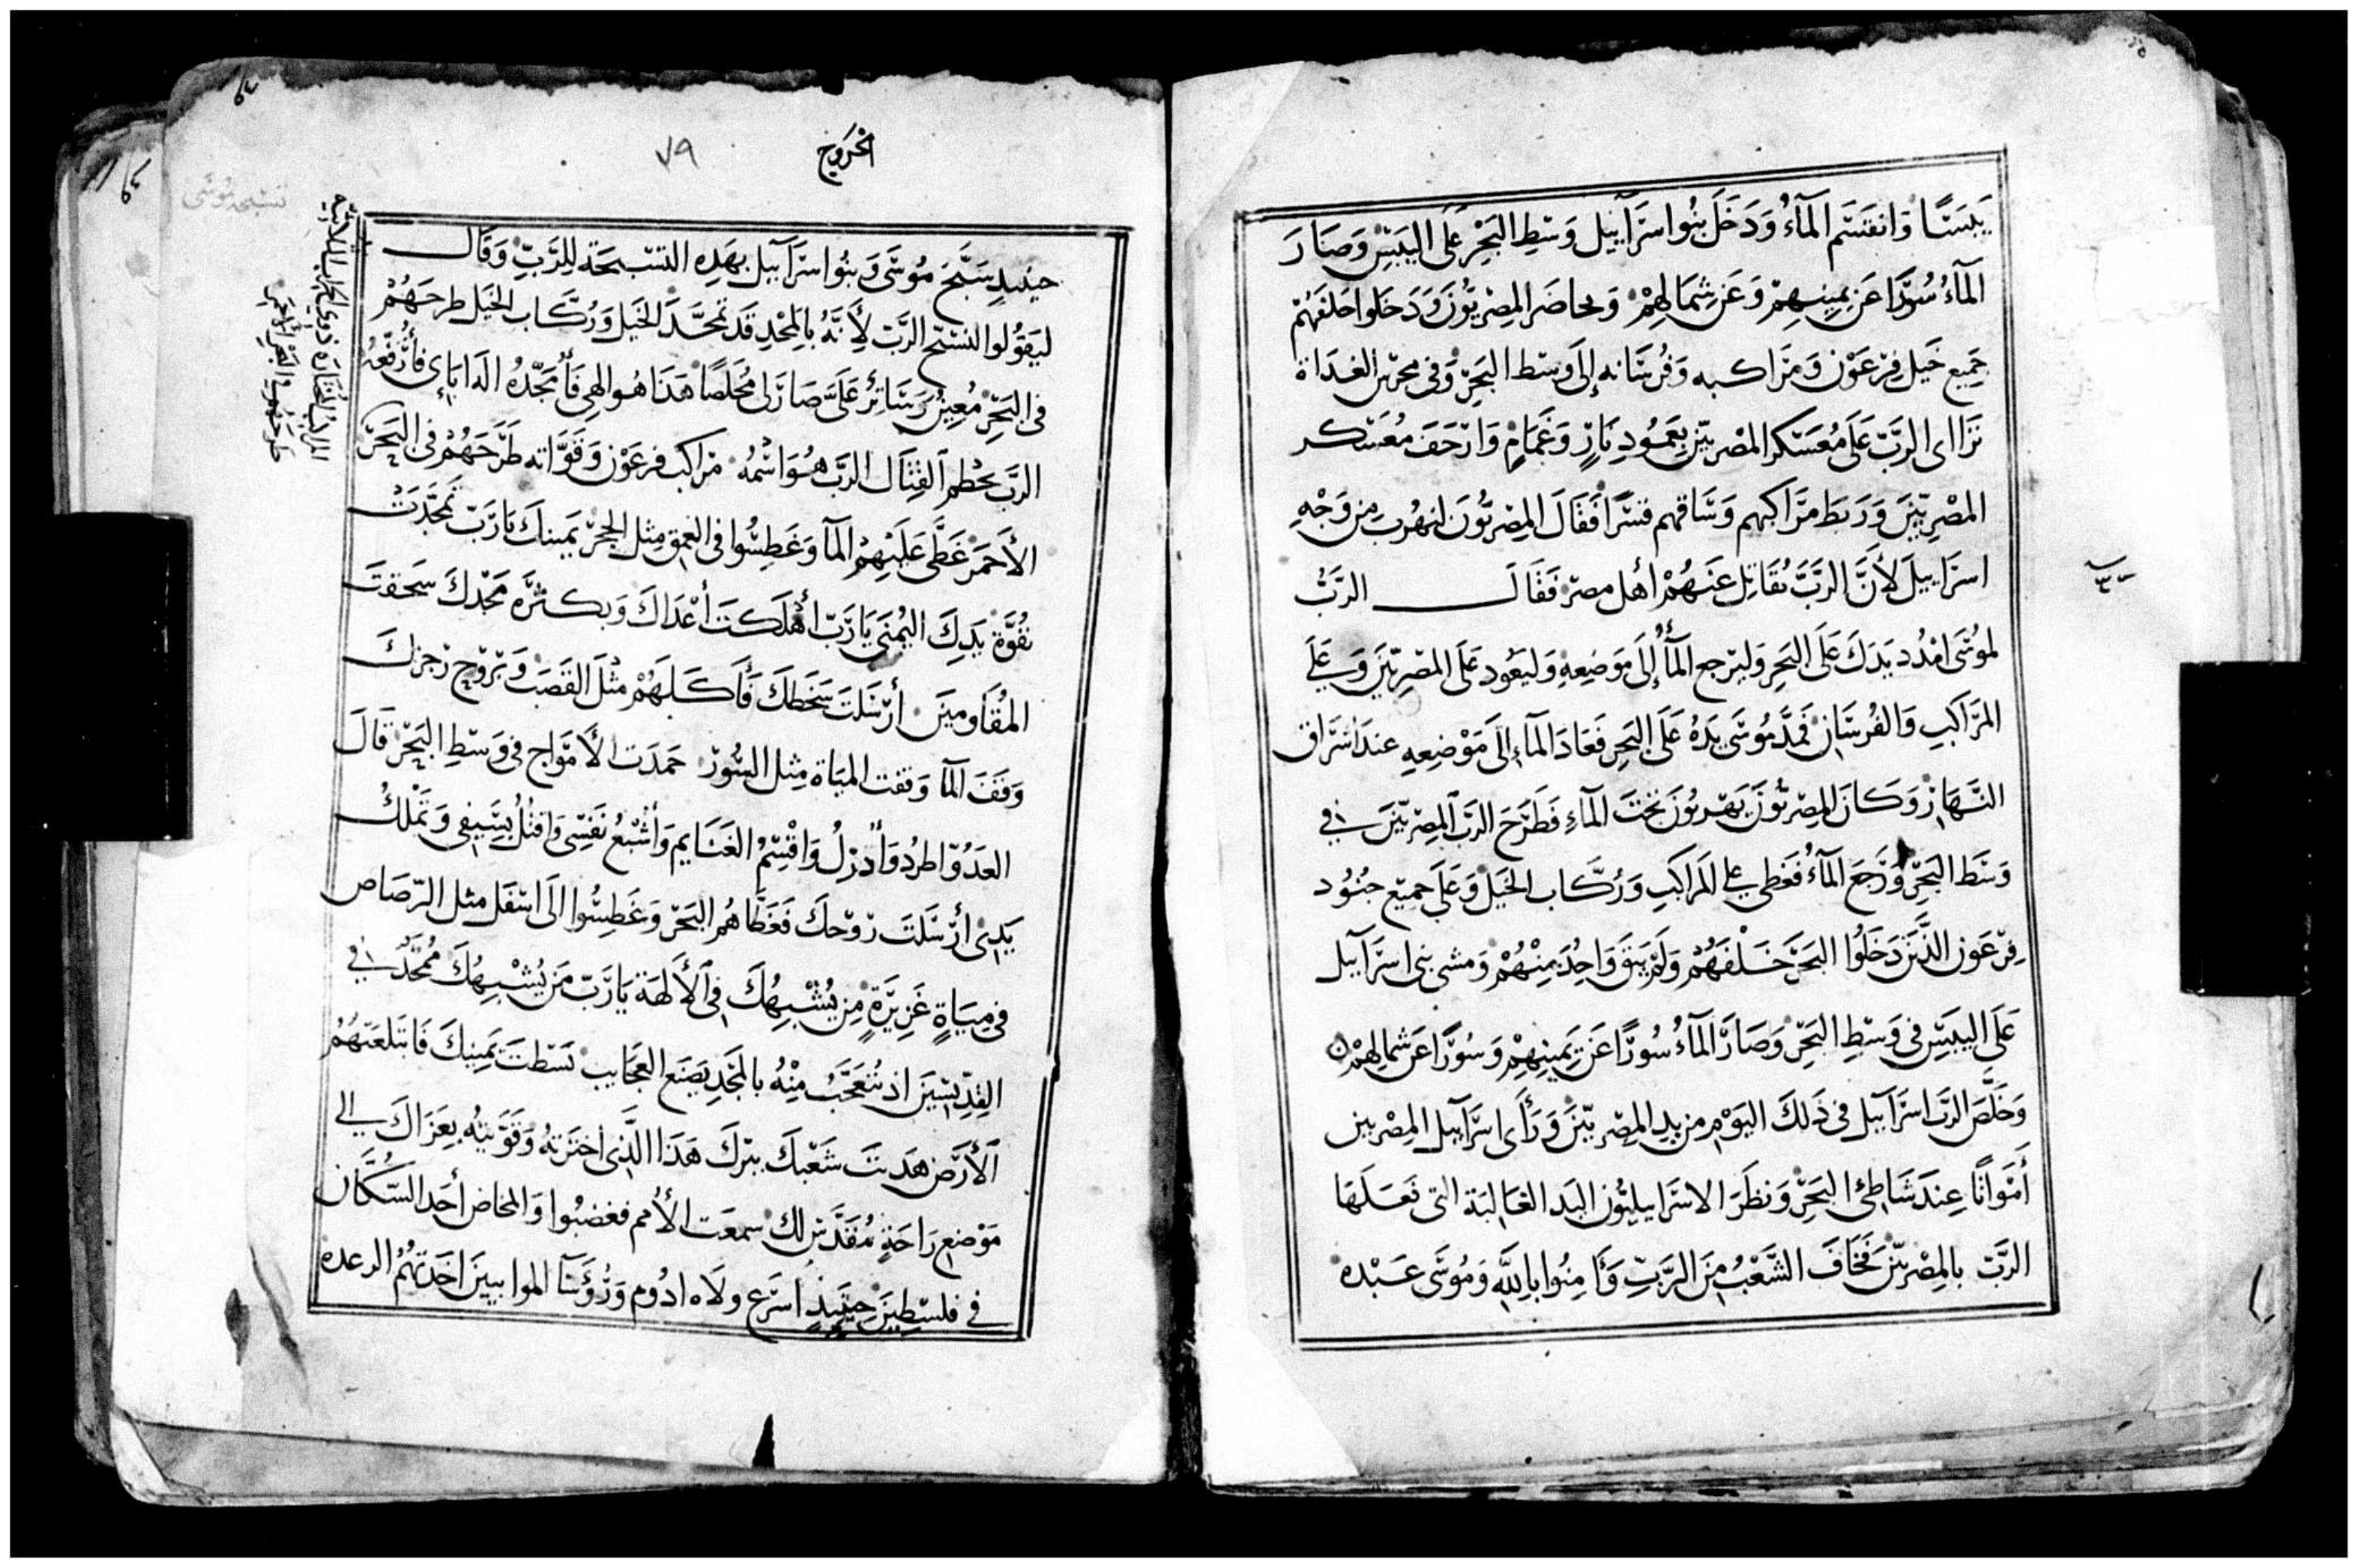 يَبَسًا وَانقَسَم المآءُ وَدَخَلَ بنُوا اسرَآييل وَسْطِ البَحْرِ عَلَى اليبَسْ وَصَارَ
المآءُ سُوْرًا عَن يمِينِهِمْ وَعَن شِمَالهِمْ وَحاصَر المِصْريُّونَ وَدَخَلوا خلفَهُمْ
جَمِيع خَيل فِرْعَوْن وَمَرَاكبه وَفُرسَانه إلَى وَسْط البَحْرِ وَفى محرس الغدَاة
تَرَااى الرَّبّ عَلَى مُعَسْكر المصْريّين بِعَمُودِ نَارٍ وَغَمَامٍ وَارْجَفَ مُعَسْكر
المصْرِيّينَ وَرَبَط مَرَاكبهم وَسَاقهم قسْرًا فَقَالَ المِصْريُّونَ لنهْرُب مِن وَجْهِ
اسرَاييلَ لأَنَّ الرَّبَّ يُقَاتِل عَنهُمْ أهل مصْرَ فَقَالَ الرَّبُّ
لمُوسَى امْدُد يَدَكَ عَلَى البَحرِ وَليَرْجع المآءُ إلَى مَوَضِعهِ وَليَعُود عَلَى المصْرِيّينَ وَعَلَى
المرَاكبِ وَالفُرسَانِ فَمدَّ مُوسَى يَدَهُ عَلَى البَحرِ فَعَادَ المآءِ إلَى مَوْضِعهِ عندَ اشرَاق
النَّهَارْ وَكَانَ المِصْريُّونَ يَهْربُونَ تحْتَ المآءِ فَطَرَحَ الرَّبّ المِصْريّينَ فى
وَسَط البَحْرِ وَرَجَعَ المآءُ فَغَطى على المَراكَبِ وَرُكَّاب الخَيَل وَعَلَى جميْع جنُوُد
فِرْعَوْن الذَّينَ دَخَلُوا البَحْرَ خَلْفَهُمْ وَلَمْ يَبْقَ وَاحِدُ مِنْهُمْ وَمشى بنى اسرَآييل
عَلَى اليبَسْ فى وَسْطِ البَحْرْ وَصَارَ المآءُ سُورًا عَنْ يَمِينِهِمْ وَسُوْرًا عَن شمالِهِمْ
وَخَلَّصَ الرَّبّ اسرَآييل فى ذَلكَ اليَوْمِ من يدِ المِصْريّينَ وَرَأى اسرَآييل المِصْريين
أَموَاتًا عِندَ شَاطئ البَحْرْ وَنظَرَ الاسرَاييليُّون اليَد الغَالبَة التى فَعَلَهَا
الرَّبّ بالمِصْريّينَ فَخَافَ الشَّعْبُ مِنَ الرَّبّ وَأمِنُوا بِاللَّهِ وَمُوسَى عَبْده
الخروج ٧٩
حينَيذٍ سَبَّحَ مُوسَى وَبنُوا اسرَآييل بهَذِه التسْبحَة للِرَّبِّ وَقَال
ليَقوُلوا لنسَبّح الرَّبّ لأَنَّهُ بالمجْدِ قَد تَمجَّدَ الخَيل وَرُكَّاب الخَيَل طرحَهُمْ
فى البَحْرِ مُعِينْ وَسَاترُ عَلَىَّ صَارَ لى مُخلصًا هَذَا هُو الهِى فَأُمَجّدُهُ الَه ابَاى فأُرَفّعهُ
الرَّبّ يحَطم القِتَال الرَّبّ هُوَ اسْمُهُ مَراكب فرعَوْن وَقوَّاته طَرَحَهُمْ فى البَحَرْ
الأَحمَرْ غَطَّى عَلَيْهِمْ المآ وَغَطِسُوا فى العُمقِ مِثل الحجَرْ يَمينكَ يَارَبّ تَمجَّدَتْ
بقُوَّة يَدِكَ اليُمنَى يَارَبّ أهْلَكتَ أعْدَاكَ وَبكثرَه مَجْدكَ سَحقتَ
المُقَاومينَ أرْسَلتَ سَخَطكَ فَأكَلَهُمْ مثْلَ القَصَب وَبرُوْح رَجزكَ
وَقفَ المآ وَقفت الميَاة مِثل السُّورْ جمَدَت الأَموَاج فى وَسْطِ البَحَرْ قَالَ
العَدُوّ اطرُد وَأُدْرِكُ وَاقْسِمُ الغَنَايم وَأُشْبعُ نَفسِى وَاقتُلُ بِسَيفِى وَتَمْلكُ
يَدِى أرْسَلتَ رُوْحكَ فَغَطَّاهُم البَحَرْ وَغَطِسُوا الَى اسْفَل مثل الرّصَاص
فى مِيَاةٍ غَزِيرَةٍ مِن يُشْبِهُكَ فى الأَلهَة يَارَبّ مَن يُشْبِهُكَ مُمَجَّدُ فى
القِدّيسِينَ اذ تُتعَجَّبُ مِنْهُ بالمَجْدِ يَصْنَع العَجَايب بَسَطتَ يَمِينكَ فَابتَلعَتْهُمُ
الأَرْض هَديتَ شَعْبكَ ببرّكَ هَذَا الَّذى اخترْتهُ وَقوَّيتهُ بِعَزَاكَ الى
مَوْضع رَاحَةٍ مُقدَّسْ لكَ سمعَت الأُمم فغضبُوا وَالمخَاض أخَد السُّكَّان
فى فلسْطِينَ حِينَيذٍ اسرَع ولَاه ادُوم وَرُؤسَآ الموابيينَ اخَدَتهُمُ الرعده